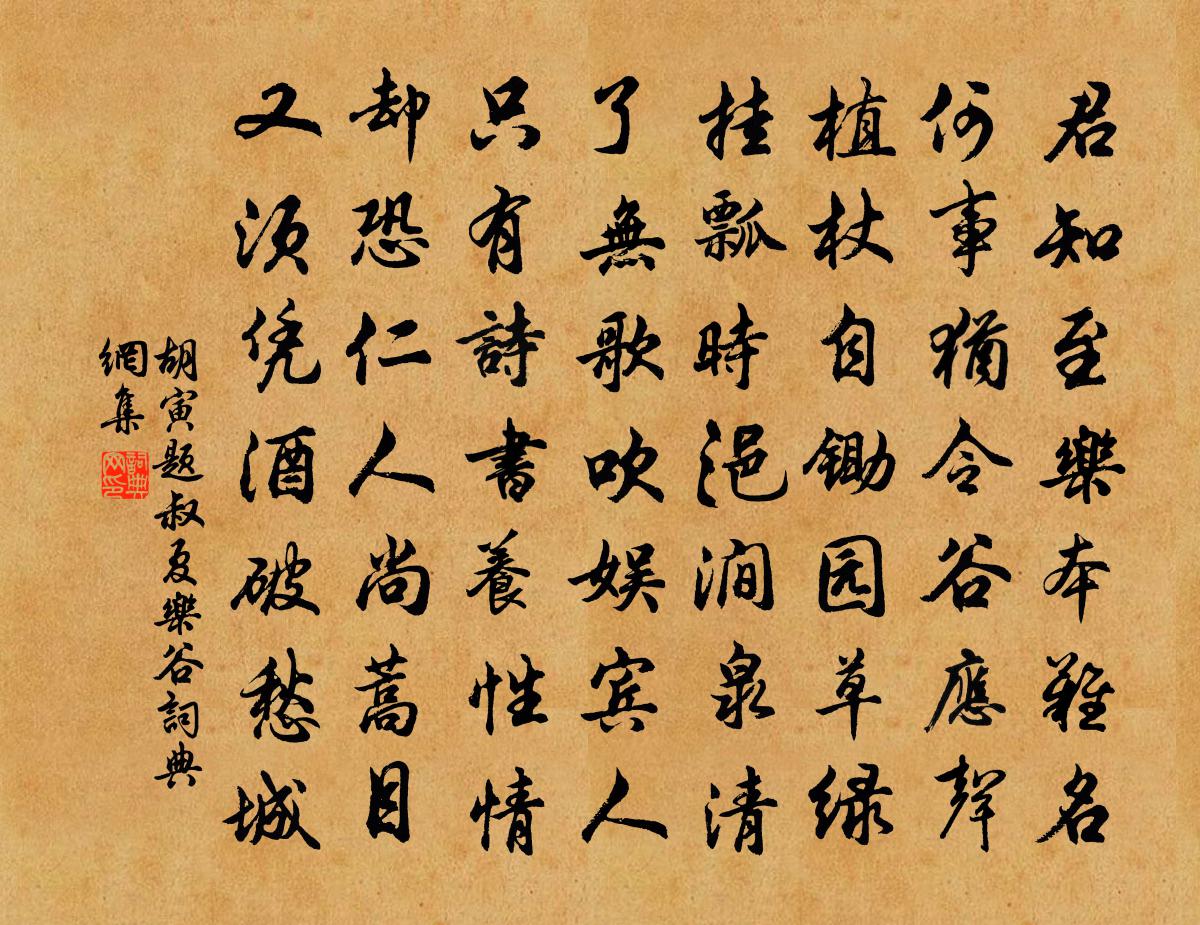 君知至樂本難名
何事猶令谷應聲
植杖自鋤园草緑
挂瓢時浥澗泉清
了無歌吹娱宾人
只有詩書養性情
却恐仁人尚蒿目
又須凭酒破愁城
胡寅题叔夏樂谷詞典
網集
詞典网印